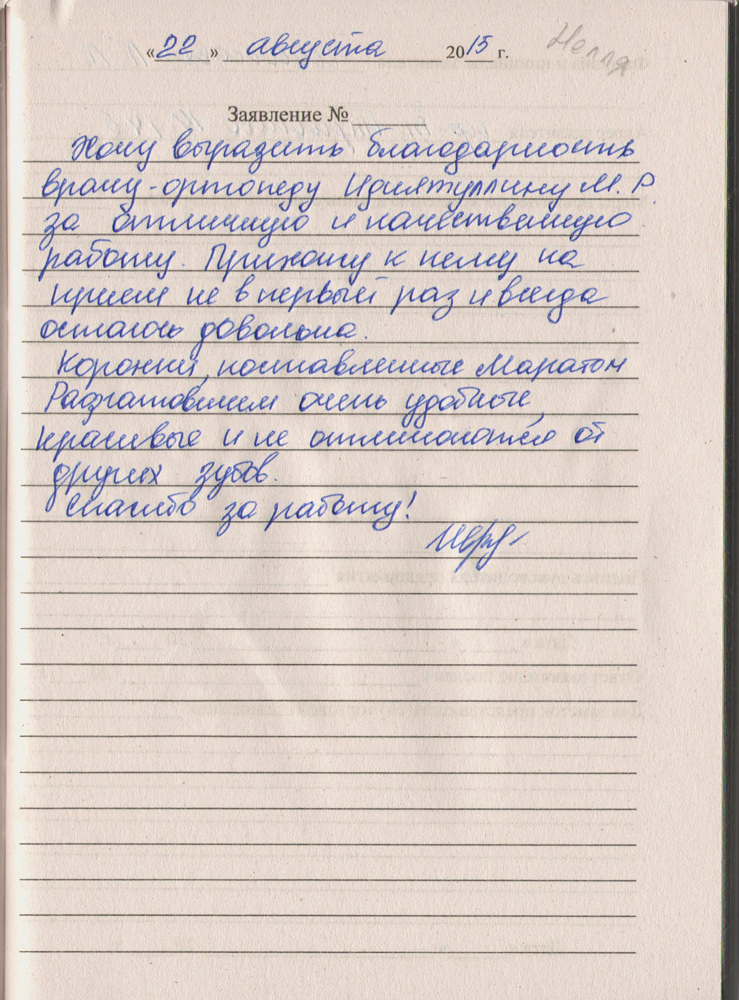 «22» августа 2015 г.
Нелля
Заявление №
Хочу выразить благодарность
врачу-ортопеду Идиятуллину М.Р.
за отличную и качественную
работу. Прихожу к нему на
прием не в первый раз и всегда
остаюсь довольна.
Коронки, поставленные Маратом
очень удобные,
красивые и не отличаются от
других зубов.
Спасибо за работу!